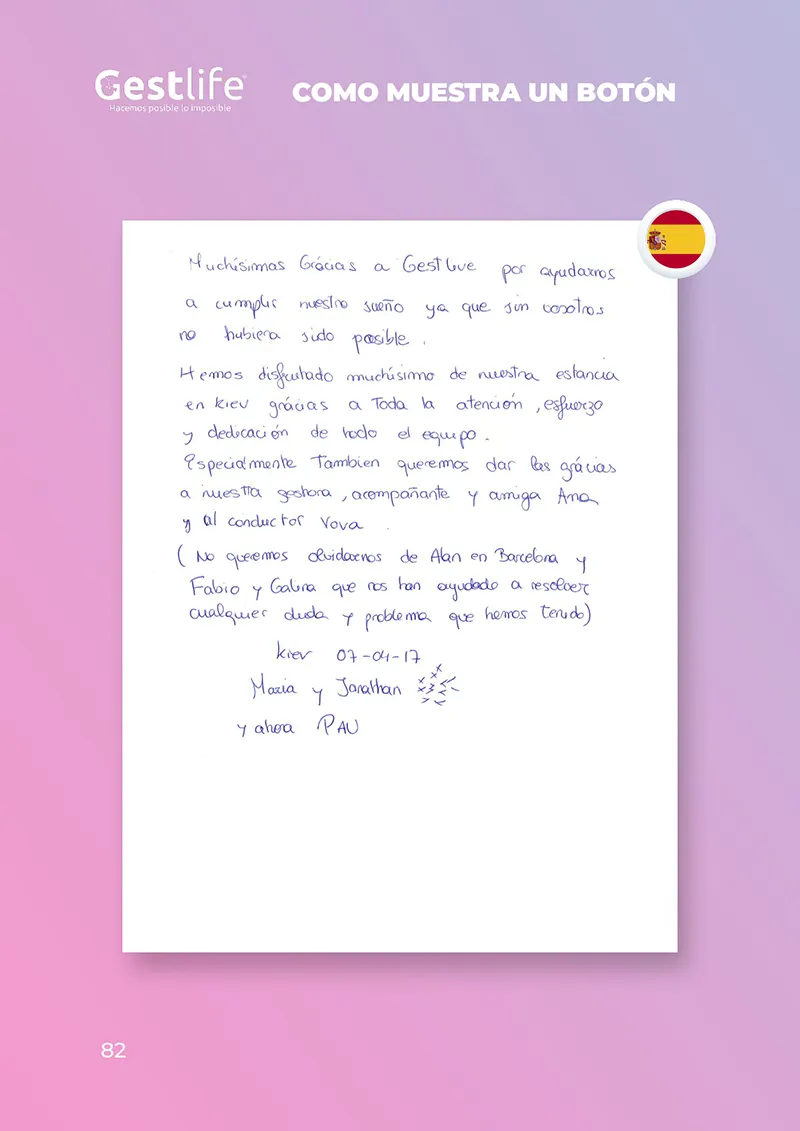 Gestlife
Hacemos posible lo imposible
COMO MUESTRA UN BOTÓN
Muchísimas Grácias a Gestlive por ayudarnos
a cumplir nuestro sueño ya que sin vosotros
no hubiera sido posible.
Hemos disfrutado muchísimo de nuestra estancia
en kiev grácias a Toda la atención, esfuerzo
y dedicación de todo el equipo.
Especialmente Tambien queremos dar las grácias
a nuestra gestora, acompañante y amiga Ana
y al conductor Vova.
(No queremos olvidarnos de Alan en Barcelona y
Fabio y Galina que nos han ayudado a resolver
cualquier duda y problema que hemos tenido)
kiev 07-04-17
Maria y Jonathan
y ahora PAU
82